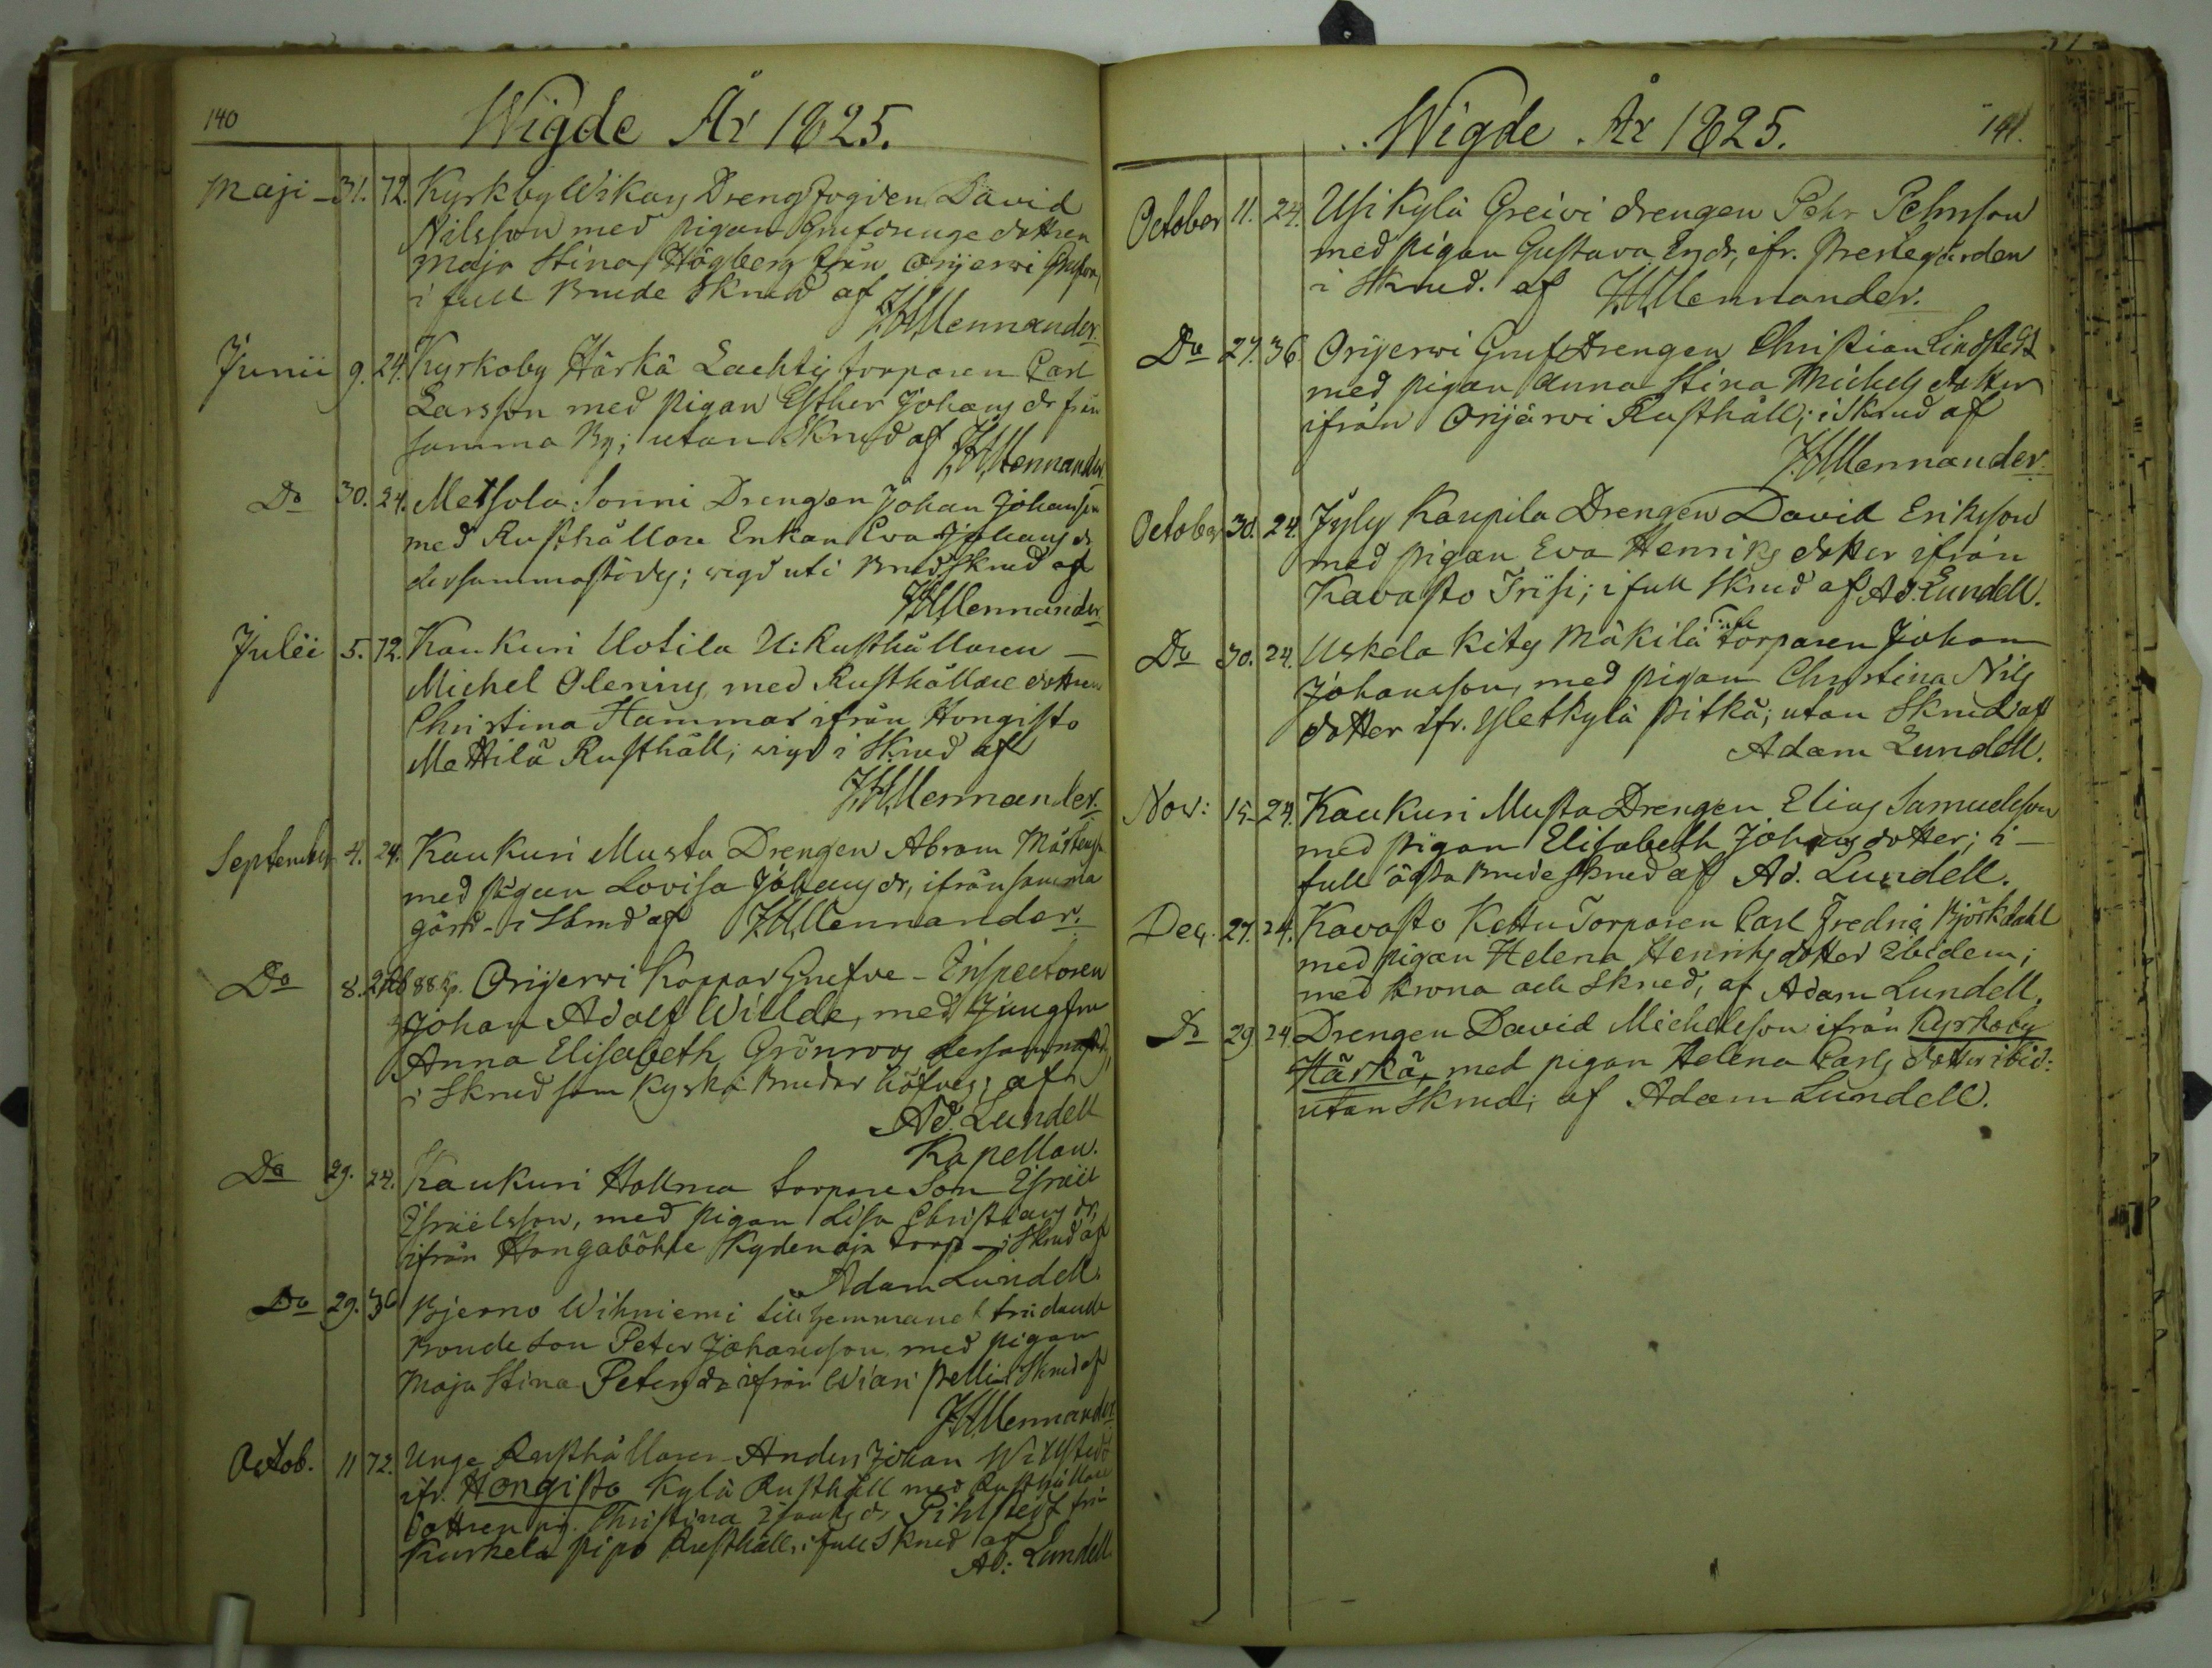 140
Wigde År 1825.
Maji 31. 72. Kyrkoby Wikars Drengfogden David
Nilsson med pigan Grufdrenge dottren
Maja Stina Högberg från Orijerwi
i full Brude Skrud af
J.H. Mennander.
Junii 9. 24. Kyrkoby Härkä Laehty torparen Carl
Larsson med pigan Esther Johans dr från
samma By; utan Skrud af J.H. Mennander
Do 30. 24. Metsola Sonni Drengen Johan Johansson
med Rusthållare Enkan Eva Johans dr
dersammastädes; wigd uti Brudskrud af
J.H. Mennander
Julii 5. 72. Kaukuri Uotila U: Rusthållaren
Michel Olenius, med Rusthållare dottren
Christina Hammar ifrån Hongisto
Mattila Rusthåll; wigd i Skrud af
J.H. Mennander.
September 4. 24. Kaukuri Musta Drengen Abram Mårtensson
med pigan Lovisa Johans dr, ifrån samma
gård - i Skrud af J.H. Mennander.
Do 8. 2 Rb 88 kp. Orijerwi Koppar Grufve - Inspectoren
Johan Adolf Willde, med Jungfru
Anna Elisabeth Grönroos dersammast:
i Skrud som Kyska Brudar höfves; af
Ad. Lundell
Kapellan.
Do 29. 24. Kaukuri Hallma torpare Son Isräel
Isräelsson, med pigan Lisa Christians dr,
ifrån Hongaböhle Kydenoja torp - i Skrud af
Adam Lundell.
Do 29. 36 Bjerno Wihniemi till hemmanet tridande
Bonde Son Peter Johansson med pigan
Maja Stina Peters dr ifrån Wiari Prelli i Skrud af
J.H. Mennander
Octob. 11 72. Unge Rusthållaren Anders Johan Willstedt
ifr. Hongisto Kylä Rusthåll med Rusthållare
dottren pig. Christina Isaaks dr Pihlstedt från
Kurkela Pipo Rusthåll, i full Skrud af
Ad: Lundell
Wigde År 1825.
141.
October 11. 24. Usikylä Greivi drengen Pehr Pehrsson
med pigan Gustava Ersdr, ifr. Prestegården
i Skrud. af J.H. Mennander.
Do 27. 36 Orijerwi Grufdrengen Christian Lindstedt
med pigan Anna Stina Michels dotter
ifrån Orijärwi Rusthåll; i Skrud af
J.H. Mennander.
October 30. 24. Jyly Kaupila Drengen David Eriksson
med pigan Eva Henriks dotter ifrån
Kavasto Irisi; i full Skrud af Ad. Lundell.
Do 30. 24. Uskela Kity Mäkilä torparen Johan
Johansson, med pigan Christina Nils
dotter ifr. Yletkylä Pitkä; utan Skrud af
Adam Lundell.
Nov: 15. 24. Kaukuri Musta Drengen Elias Samuelsson
med pigan Elisabeth Johans dotter; i
full ägta Brudeskrud af Ad. Lundell.
Dec. 27. 24. Kavasto Kettu Torparen Carl Fredric Björkdahl
med pigan Helena Henriks dotter Ibidem;
med krona och Skrud, af Adam Lundell.
Do 29 24 Drengen David Michelsson ifrån Kyrkoby
Härkä, med pigan Helena Carls dotter ibid:
utan Skrud; af Adam Lundell.